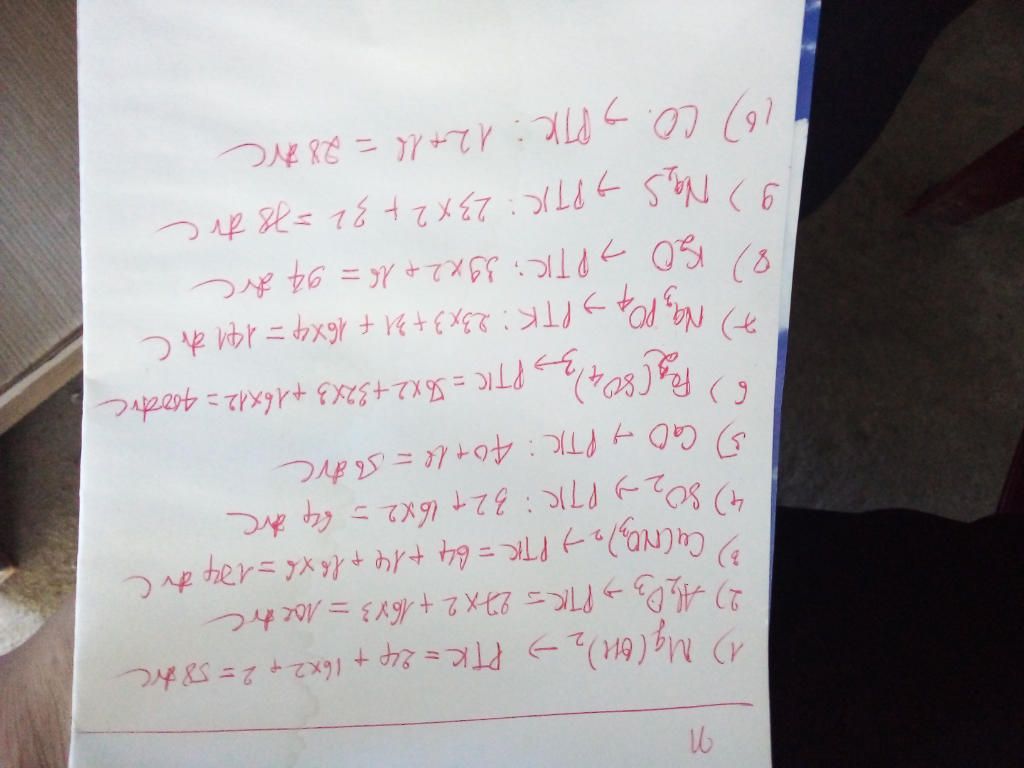 1) Mg(OH)₂ → PTK = 24 + 16x2 + 2 = 58 đvC
2) Al₂O₃ → PTK = 27x2 + 16x3 = 102 đvC
3) Cu(NO₃)₂ → PTK = 64 + 14 + 16x6 = 174 đvC
4) SO₂ → PTK: 32 + 16x2 = 64 đvC
5) CaO → PTK: 40 + 16 = 56 đvC
6) Fe₂(SO₄)₃ → PTK = 56x2 + 32x3 + 16x12 = 400 đvC
7) Na₃PO₄ → PTK: 23x3 + 31 + 16x4 = 191 đvC
8) K₂O → PTK: 39x2 + 16 = 94 đvC
9) Na₂S → PTK: 23x2 + 32 = 78 đvC
10) CO → PTK: 12 + 16 = 28 đvC